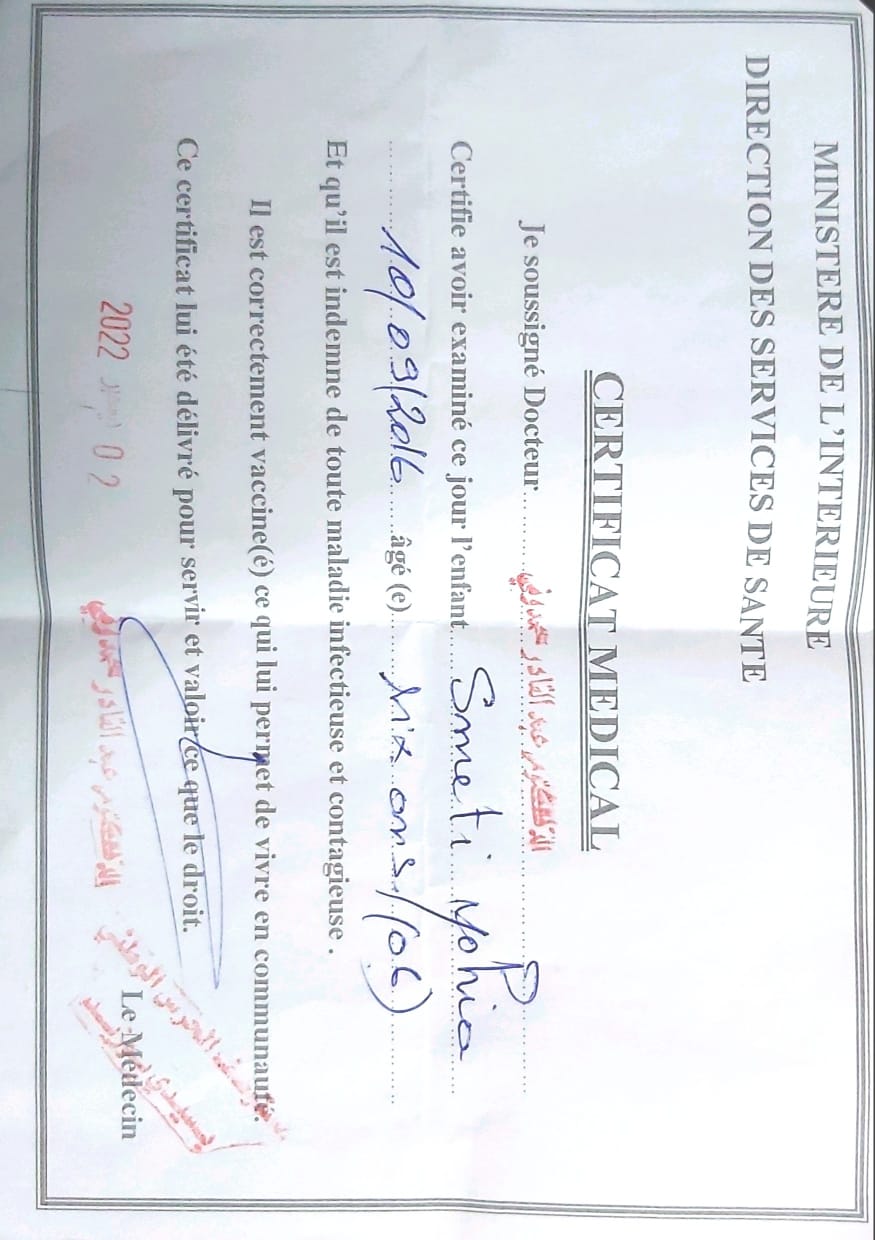 MINISTERE DE L'INTERIEURE
DIRECTION DES SERVICES DE SANTE
CERTIFICAT MEDICAL
Je soussigné Docteur.......... الدكتور عبد القادر حمدوني
Certifie avoir examiné ce jour l'enfant.... Smeti
10/09/2016 ......âgé (e)...... ans/(06)
Et qu'il est indemne de toute maladie infectieuse et contagieuse .
Il est correctement vaccine(é) ce qui lui permet de vivre en communauté.
Ce certificat lui été délivré pour servir et valoir ce que le droit.
2022 02
Le Médecin
الدكتور عبد القادر حمدوني
الحرس الوطني
بسيدي بوزيد